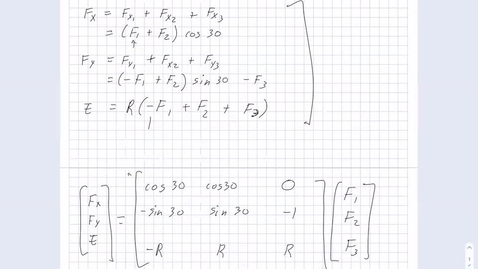 Fx = Fx1 + Fx2 + Fx3
= (F1 + F2) cos 30
Fy = Fy1 + Fx2 + Fy3
= (-F1 + F2) sin 30 - F3
τ = R(-F1 + F2 + F3)
[Fx Fy τ] = [cos 30 cos 30 0
-sin 30 sin 30 -1
-R R R] [F1 F2 F3]